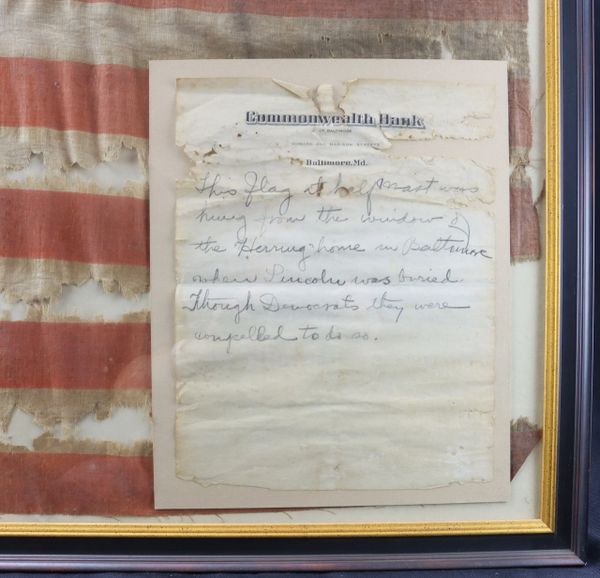 Commonwealth Bank
OF BALTIMORE
HOWARD AND MADISON STREETS
Baltimore, Md.
This flag at half mast was
hung from the window of
the Herring home in Baltimore
when Lincoln was buried.
Though Democrats they were
compelled to do so.